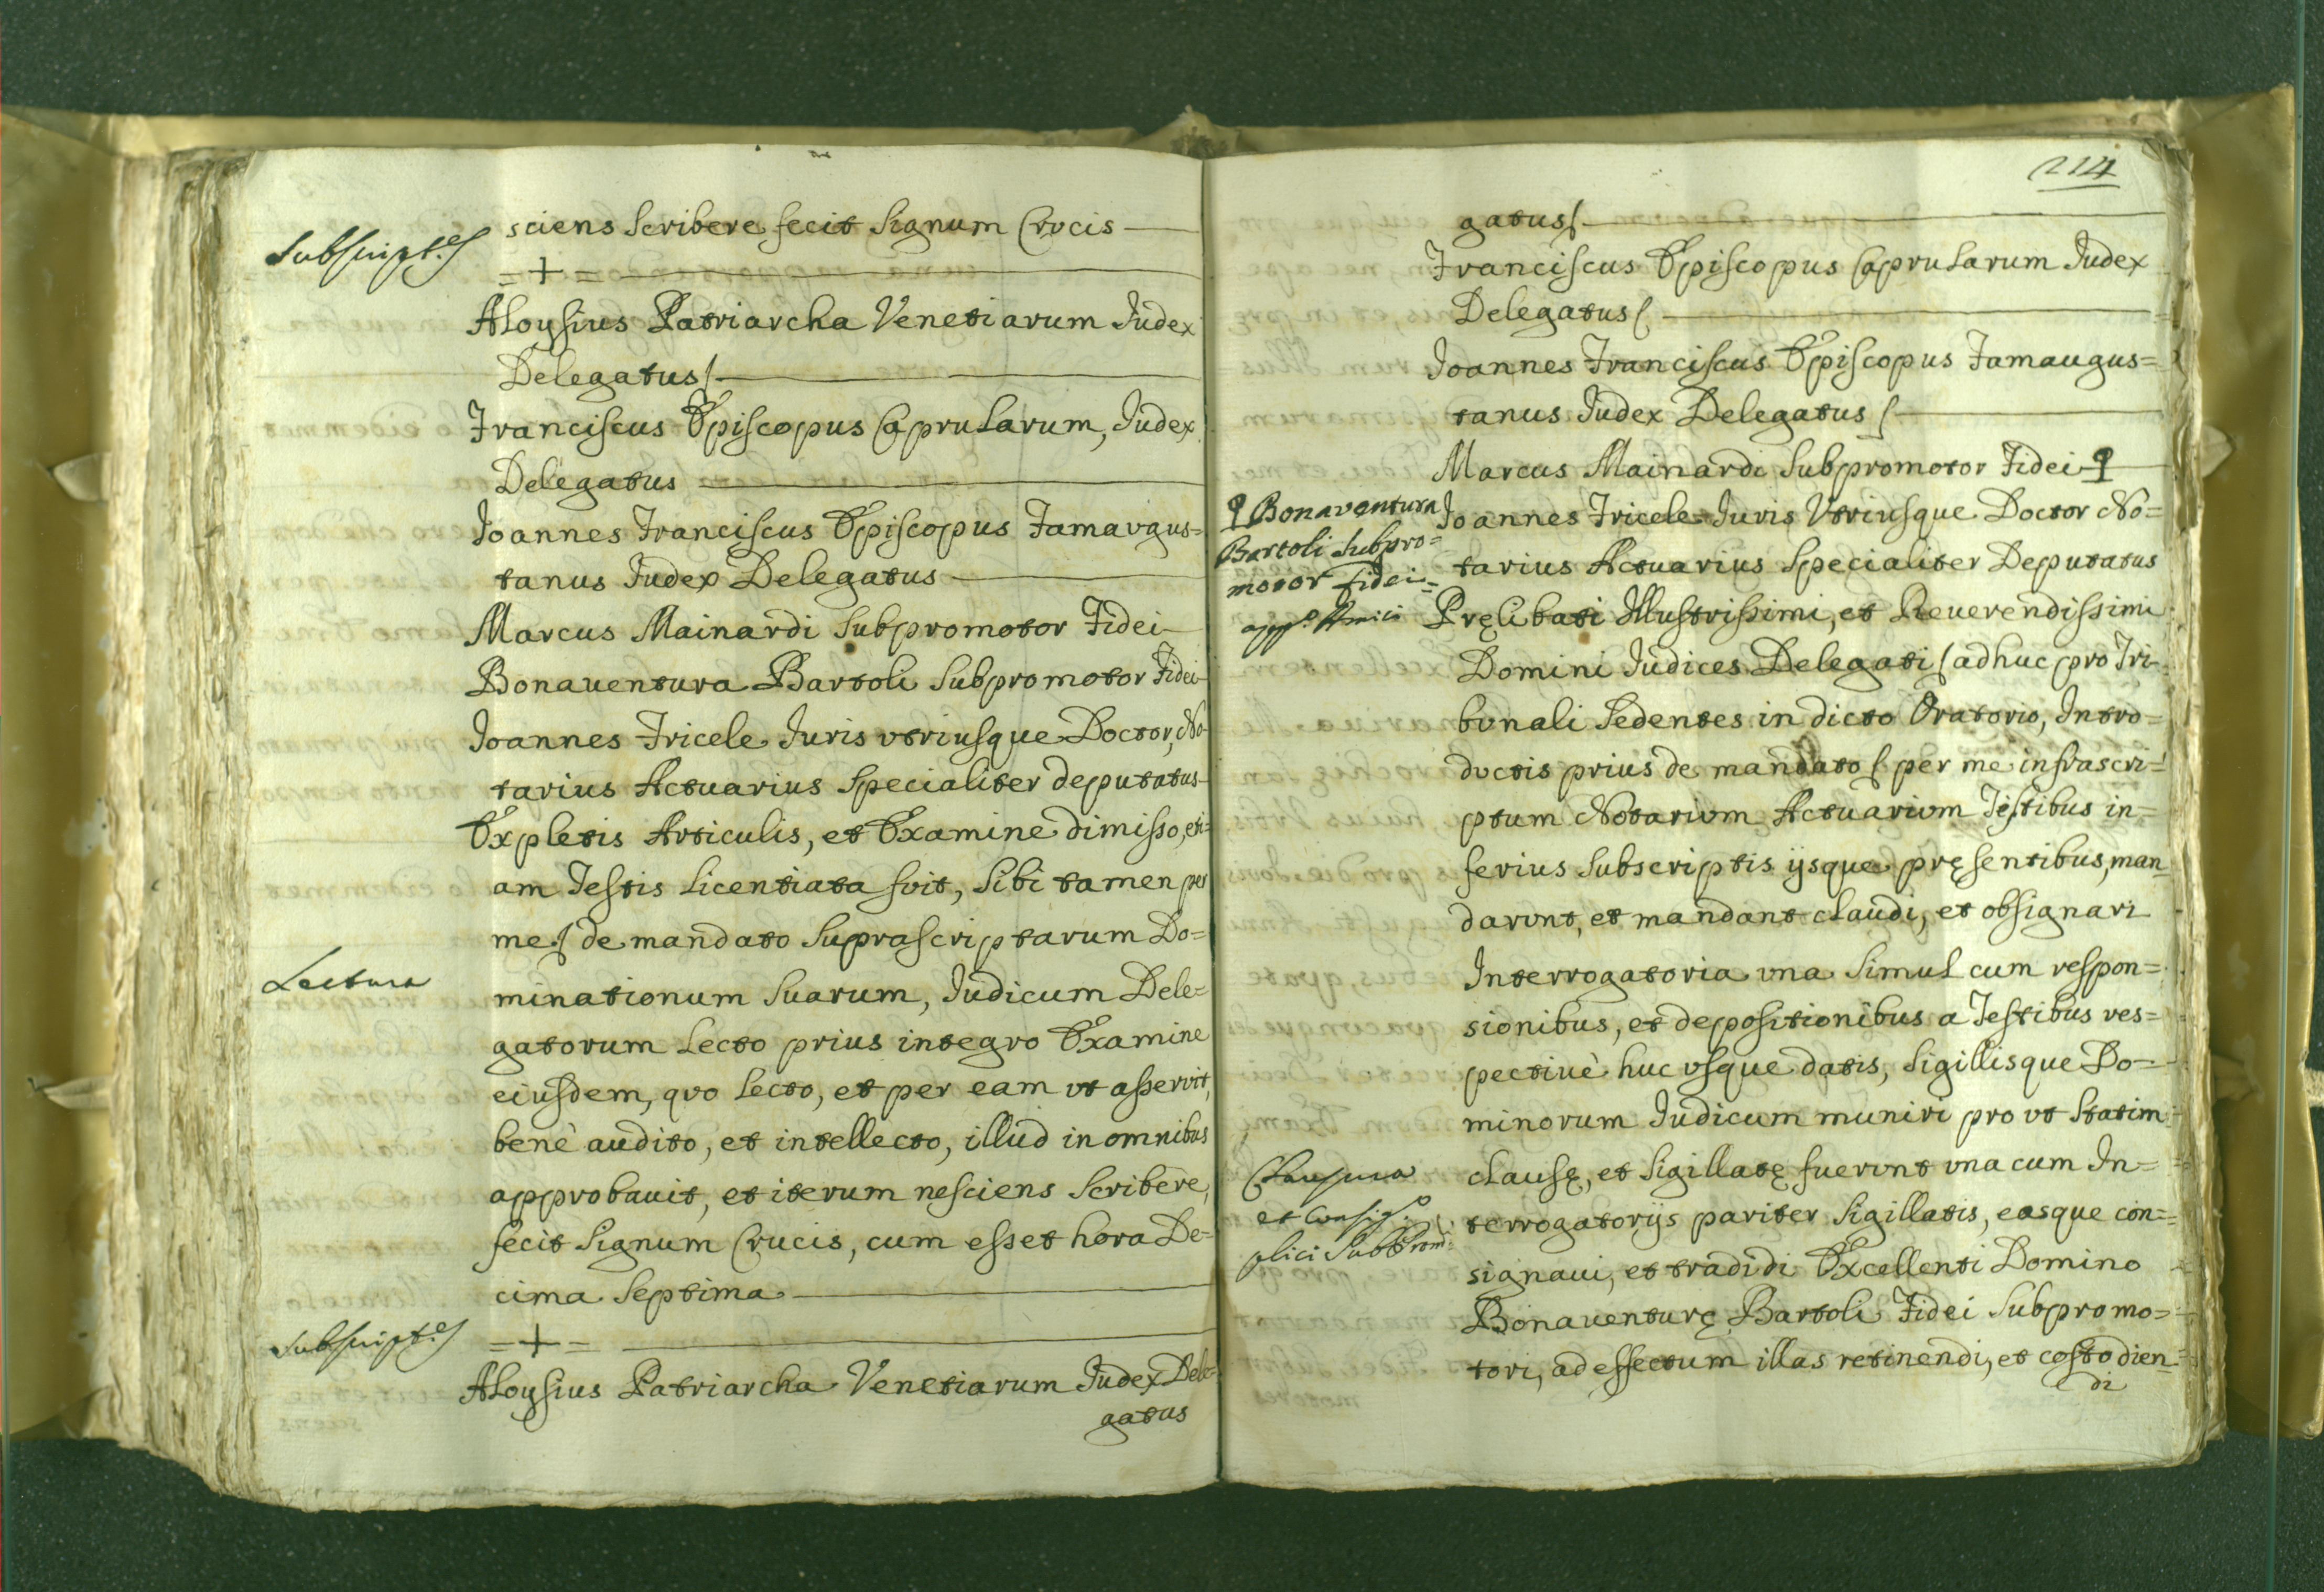 Subscript.es
sciens Scribere fecit Signum Crucis
= + =
Aloysius Patriarcha Venetiarum Iudex
Delegatus
Franciscus Episcopus Caprularum, Iudex
Delegatus
Joannes Franciscus Episcopus Famavgus=
tanus Iudex Delegatus
Marcus Mainardi Subpromotor Fidei
Bonauentura Bartoli Subpromotor Fidei
Joannes Fricele Iuris vtriusque Doctor, No=
tarius Actuarius Specialiter deputatus
Expletis Articulis, et Examine dimisso, eti=
am Testis licentiata fvit, Sibi tamen per
me de mandato Suprascriptarum Do=
Lectura
minationum Suarum, Iudicum Dele=
gatorum Lecto prius integro Examine
eiusdem, qvo Lecto, et per eam vt asservit,
benè audito, et intellecto, illud in omnibus
approbauit, et iterum nesciens Scribere,
fecit Signum Crucis, cum esset hora De=
cima Septima
Subscript.es
= + =
Aloysius Patriarcha Venetiarum Iudex Dele=
gatus
214
gatus
Franciscus Episcopus Caprularum Iudex
Delegatus
Joannes Franciscus Episcopus Famaugus=
tanus Iudex Delegatus
Marcus Mainardi Subpromotor Fidei
Bonaventura
Bartoli Subpro=
motor fidei=
Joannes Fricele Iuris Vtriusque Doctor No=
tarius Actuarius Specialiter Deputatus
Pręlibati Illustrissimi, et Reuerendissimi
Domini Iudices Delegati adhuc pro Tri=
bvnali Sedentes in dicto Oratorio, Intro=
dvctis prius de mandato per me infrascri=
ptum Notarivm Actuarivm Testibus in=
ferius Subscriptis ijsque pręsentibus, man=
darvnt, et mandant claudi, et obsignari
Interrogatoria vna Simul cum respon=
sionibus, et depositionibus a Testibus res=
pectiuè huc vsque datis, Sigillisque Do=
minorum Iudicum muniri pro vt Statim
Clausura
et Consig.o
plici Subprom.
clausę, et Sigillatę fuervnt vna cum In=
terrogatorijs pariter Sigillatis, easque con=
signaui, et tradidi Excellenti Domino
Bonauenturę Bartoli Fidei Subpromo=
tori, ad effectum illas retinendi, et costodien=
di